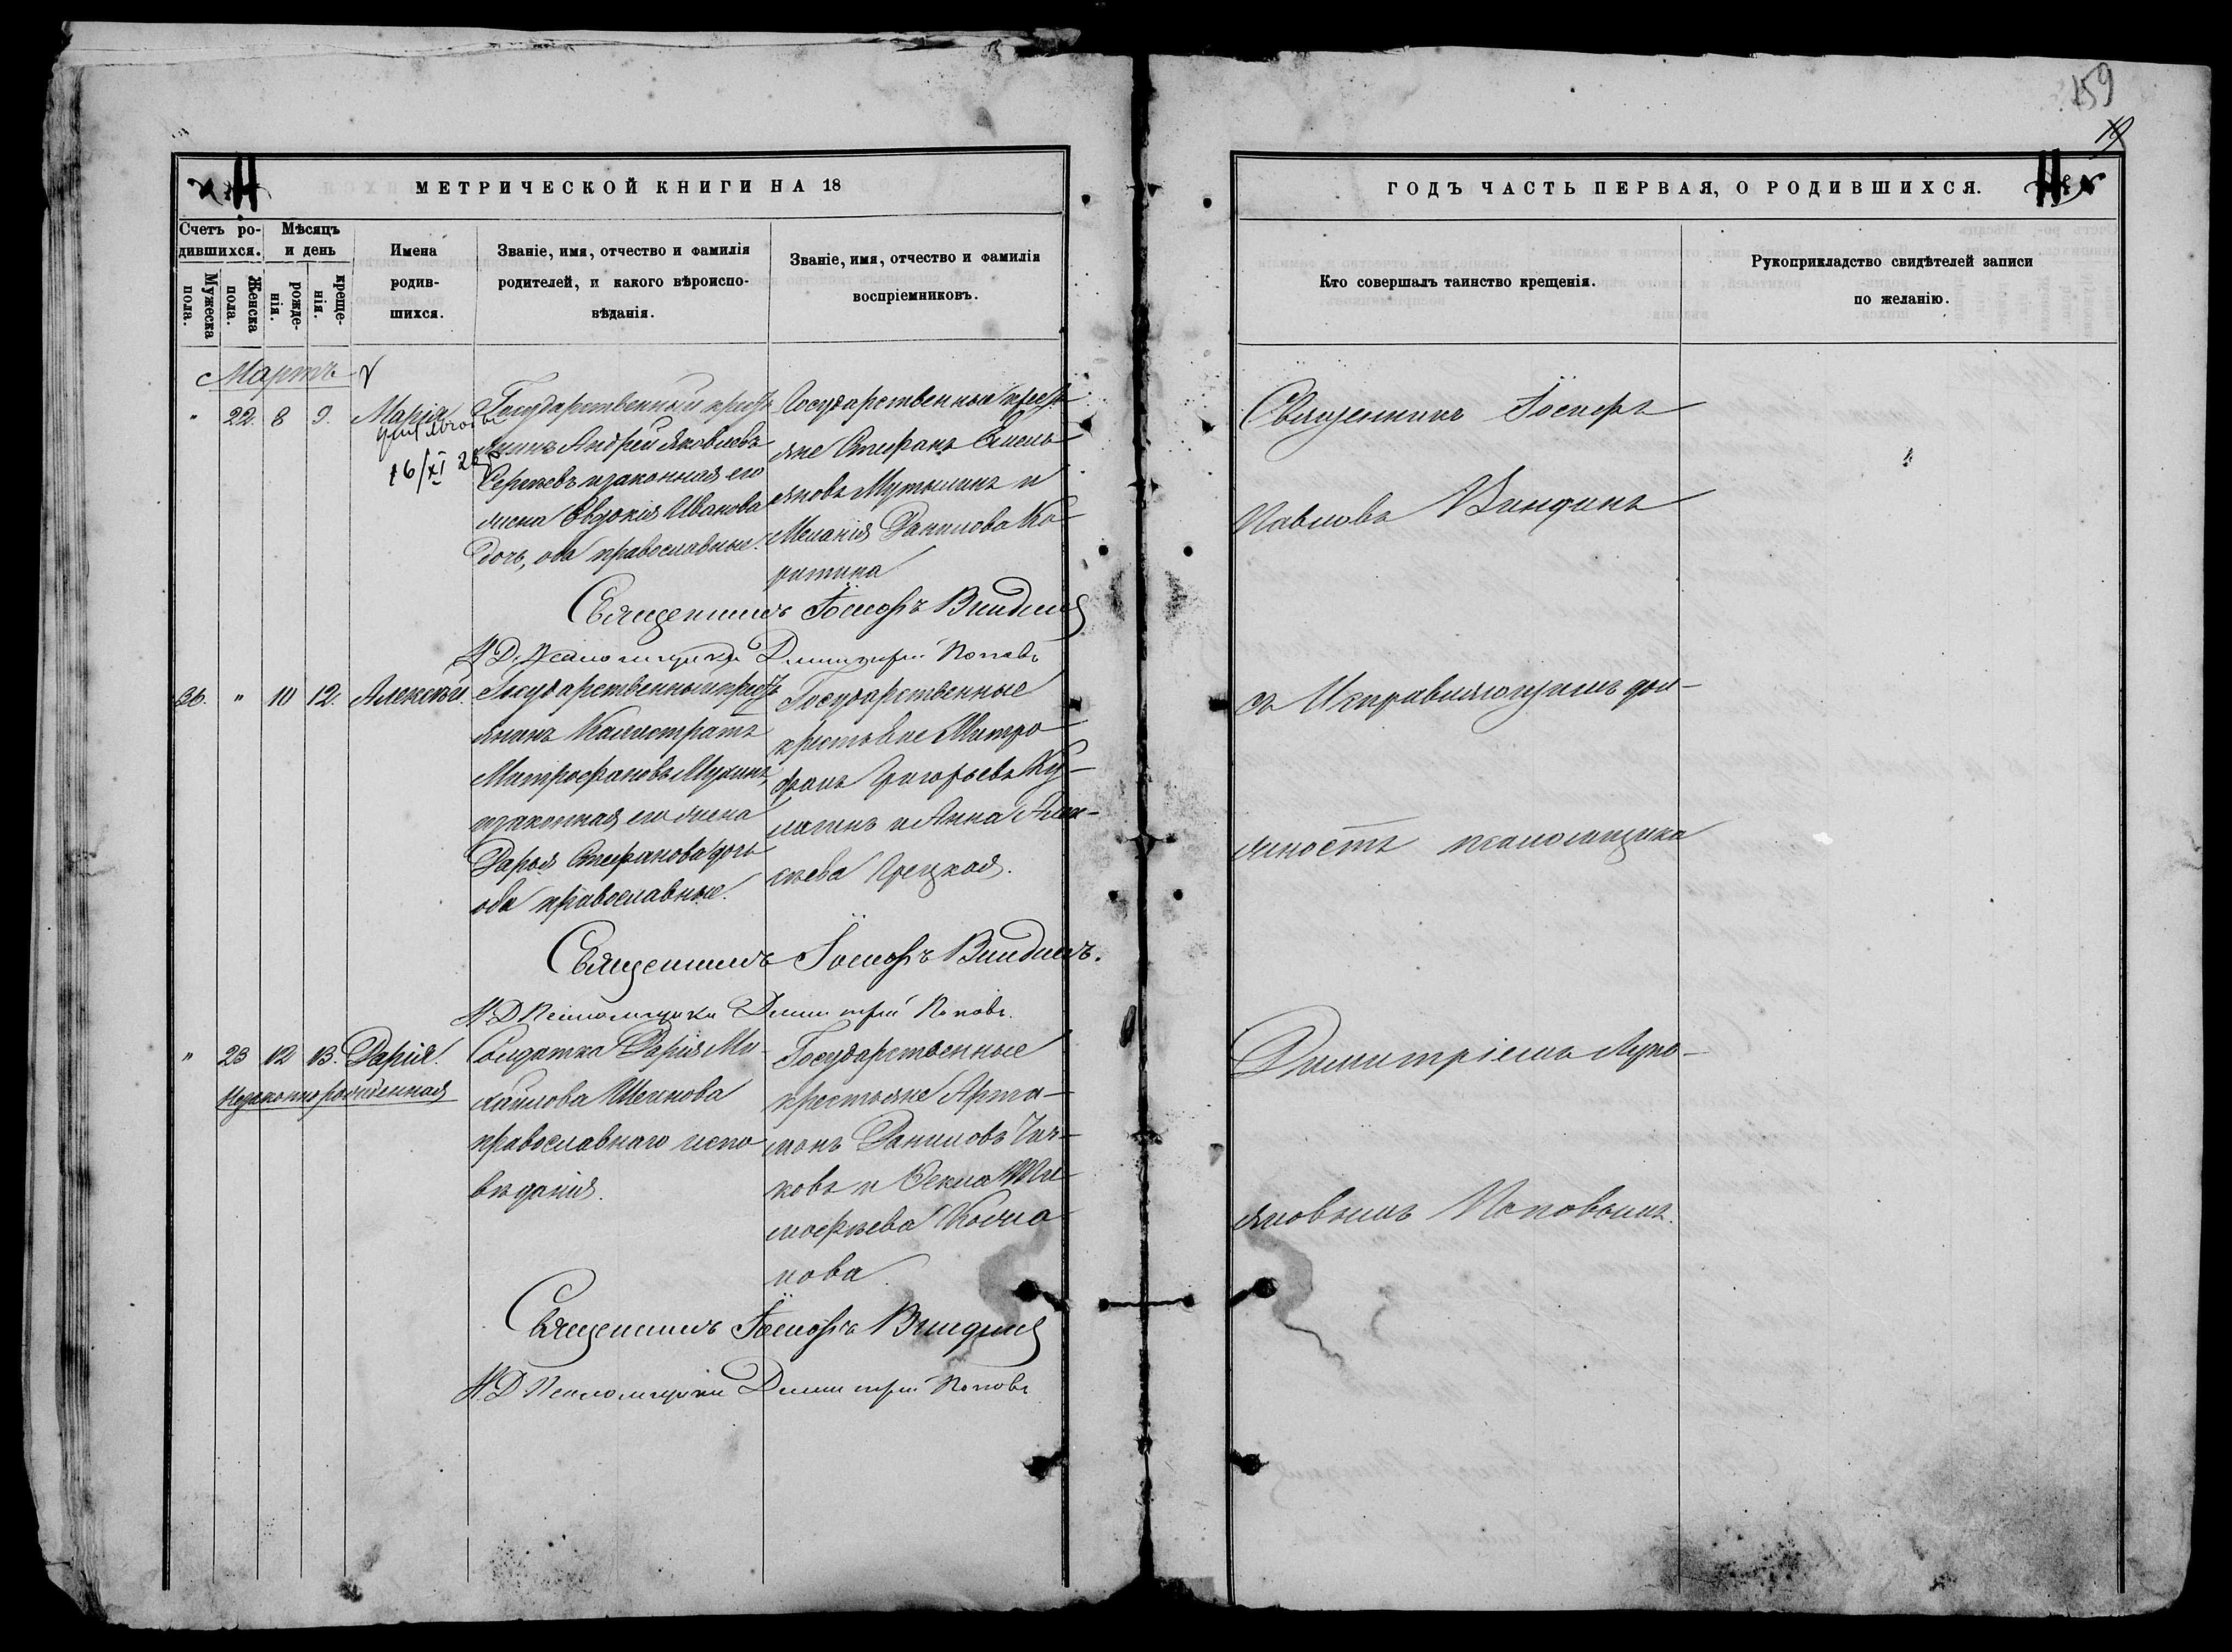 159
19
МЕТРИЧЕСКОЙ КНИГИ НА 18
Счетъ ро-
дившихся.
Мужеска
пола.
Женска
пола.
Мѣсяцъ
и день
рожде-
нія.
креще-
нія.
Имена
родив-
шихся.
Званіе, имя, отчество и фамилія
родителей, и какого вѣроиспо-
вѣданія.
Званіе, имя, отчество и фамилія
воспріемниковъ.
Мартъ
" 22. 8 9. Марія
16/XI 28
Государственный крест
янинъ Андрей Яковлевъ
Сергѣевъ и законная его
жена Евдокія Иванова
дочь, оба православные.
Государственные крест
яне Стефанъ Емель
яновъ и
Меланія Данилова Ко
Священникъ Іосифъ Виндинъ
И.Д. Псаломщика Димитрій Поповъ
36. " 10 12. Алексѣй.
Государственный крест
янинъ Каллистратъ
Митрофановъ Мухинъ,
и законная его жена
Дарья Стефанова дочь
оба православные.
Государственные
крестьяне Митро
фанъ Григорьевъ Ку-
и Анна Алек-
сѣева Грецкая.
Священникъ Іосифъ Виндинъ.
И.Д. Псаломщика Димитрій Поповъ.
" 23 12 13. Дарія.
Незаконнорожденная
Солдатка Дарія Ми-
хайлова Шеинова
православнаго испо
вѣданія.
Государственные
крестьяне Арта-
монъ Даниловъ
ковъ и Фекла Ти
моѳеева
нова.
Священникъ Іосифъ Виндинъ
И.Д. Псаломщика Димитрій Поповъ
ГОДЪ ЧАСТЬ ПЕРВАЯ, О РОДИВШИХСЯ.
Кто совершалъ таинство крещенія.
Рукоприкладство свидѣтелей записи
по желанію.
Священникъ Іосифъ
Павловъ Виндинъ
съ Исправляющимъ дол-
жность псаломщика
Димитріемъ Луко-
яновымъ Поповымъ.